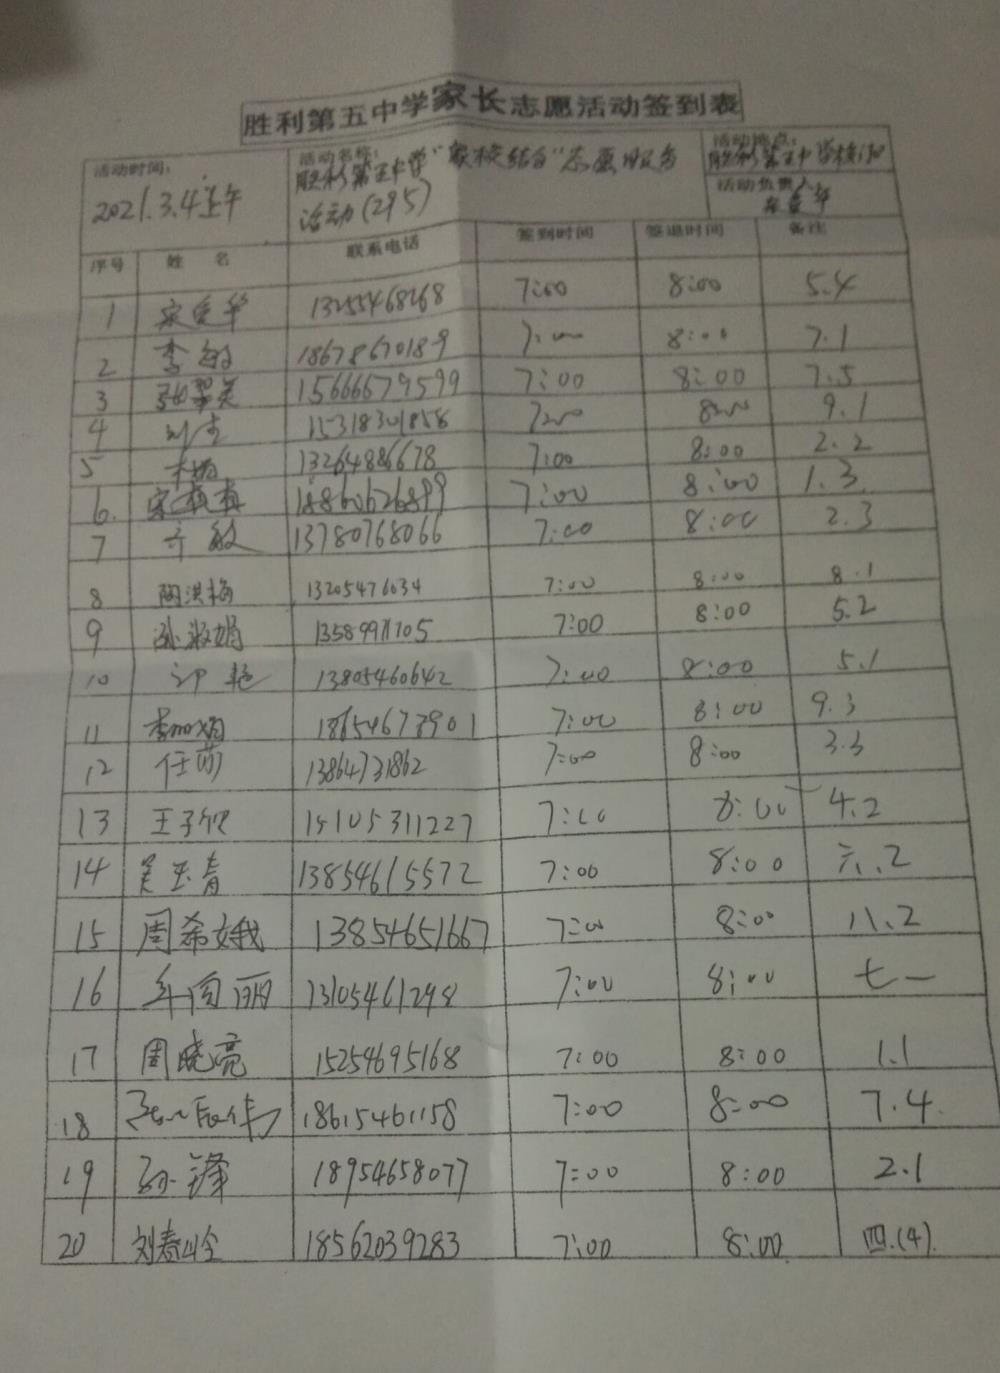 胜利第五中学家长志愿活动签到表
活动时间: 活动名称: 活动地点:
2021.3.4上午 胜利第五中学"家校结合"志愿服务 胜利第五中学校门口
活动(295) 活动负责人:
序号 姓名 联系电话 签到时间 签退时间 备注
1 宋爱华 13255468268 7:00 8:00 5.4
2 李敏 18678670189 7:00 8:00 7.1
3 张翠美 15666679599 7:00 8:00 7.5
4 15318301858 7:00 8:00 9.1
5 13264886678 7:00 8:00 2.2
6. 宋真真 18860626899 7:00 8:00 1.3
7 敏 13780768066 7:00 8:00 2.3
8 陶洪梅 13205476034 7:00 8:00 8.1
9 孙淑娟 13589991705 7:00 8:00 5.2
10 艳 13805460642 7:00 8:00 5.1
11 李 娟 18654673901 7:00 8:00 9.3
12 任莉 13864731862 7:00 8:00 3.3
13 王子 15105311227 7:00 8:00 4.2
14 吴玉青 13854615572 7:00 8:00 六.2
15 周希娥 13854651667 7:00 8:00 八.2
16 丽 13105461298 7:00 8:00 七一
17 周晓亮 15254695168 7:00 8:00 1.1
18 18615461158 7:00 8:00 7.4
19 孙锋 18954658077 7:00 8:00 2.1
20 刘春 18562039283 7:00 8:00 四.(4).